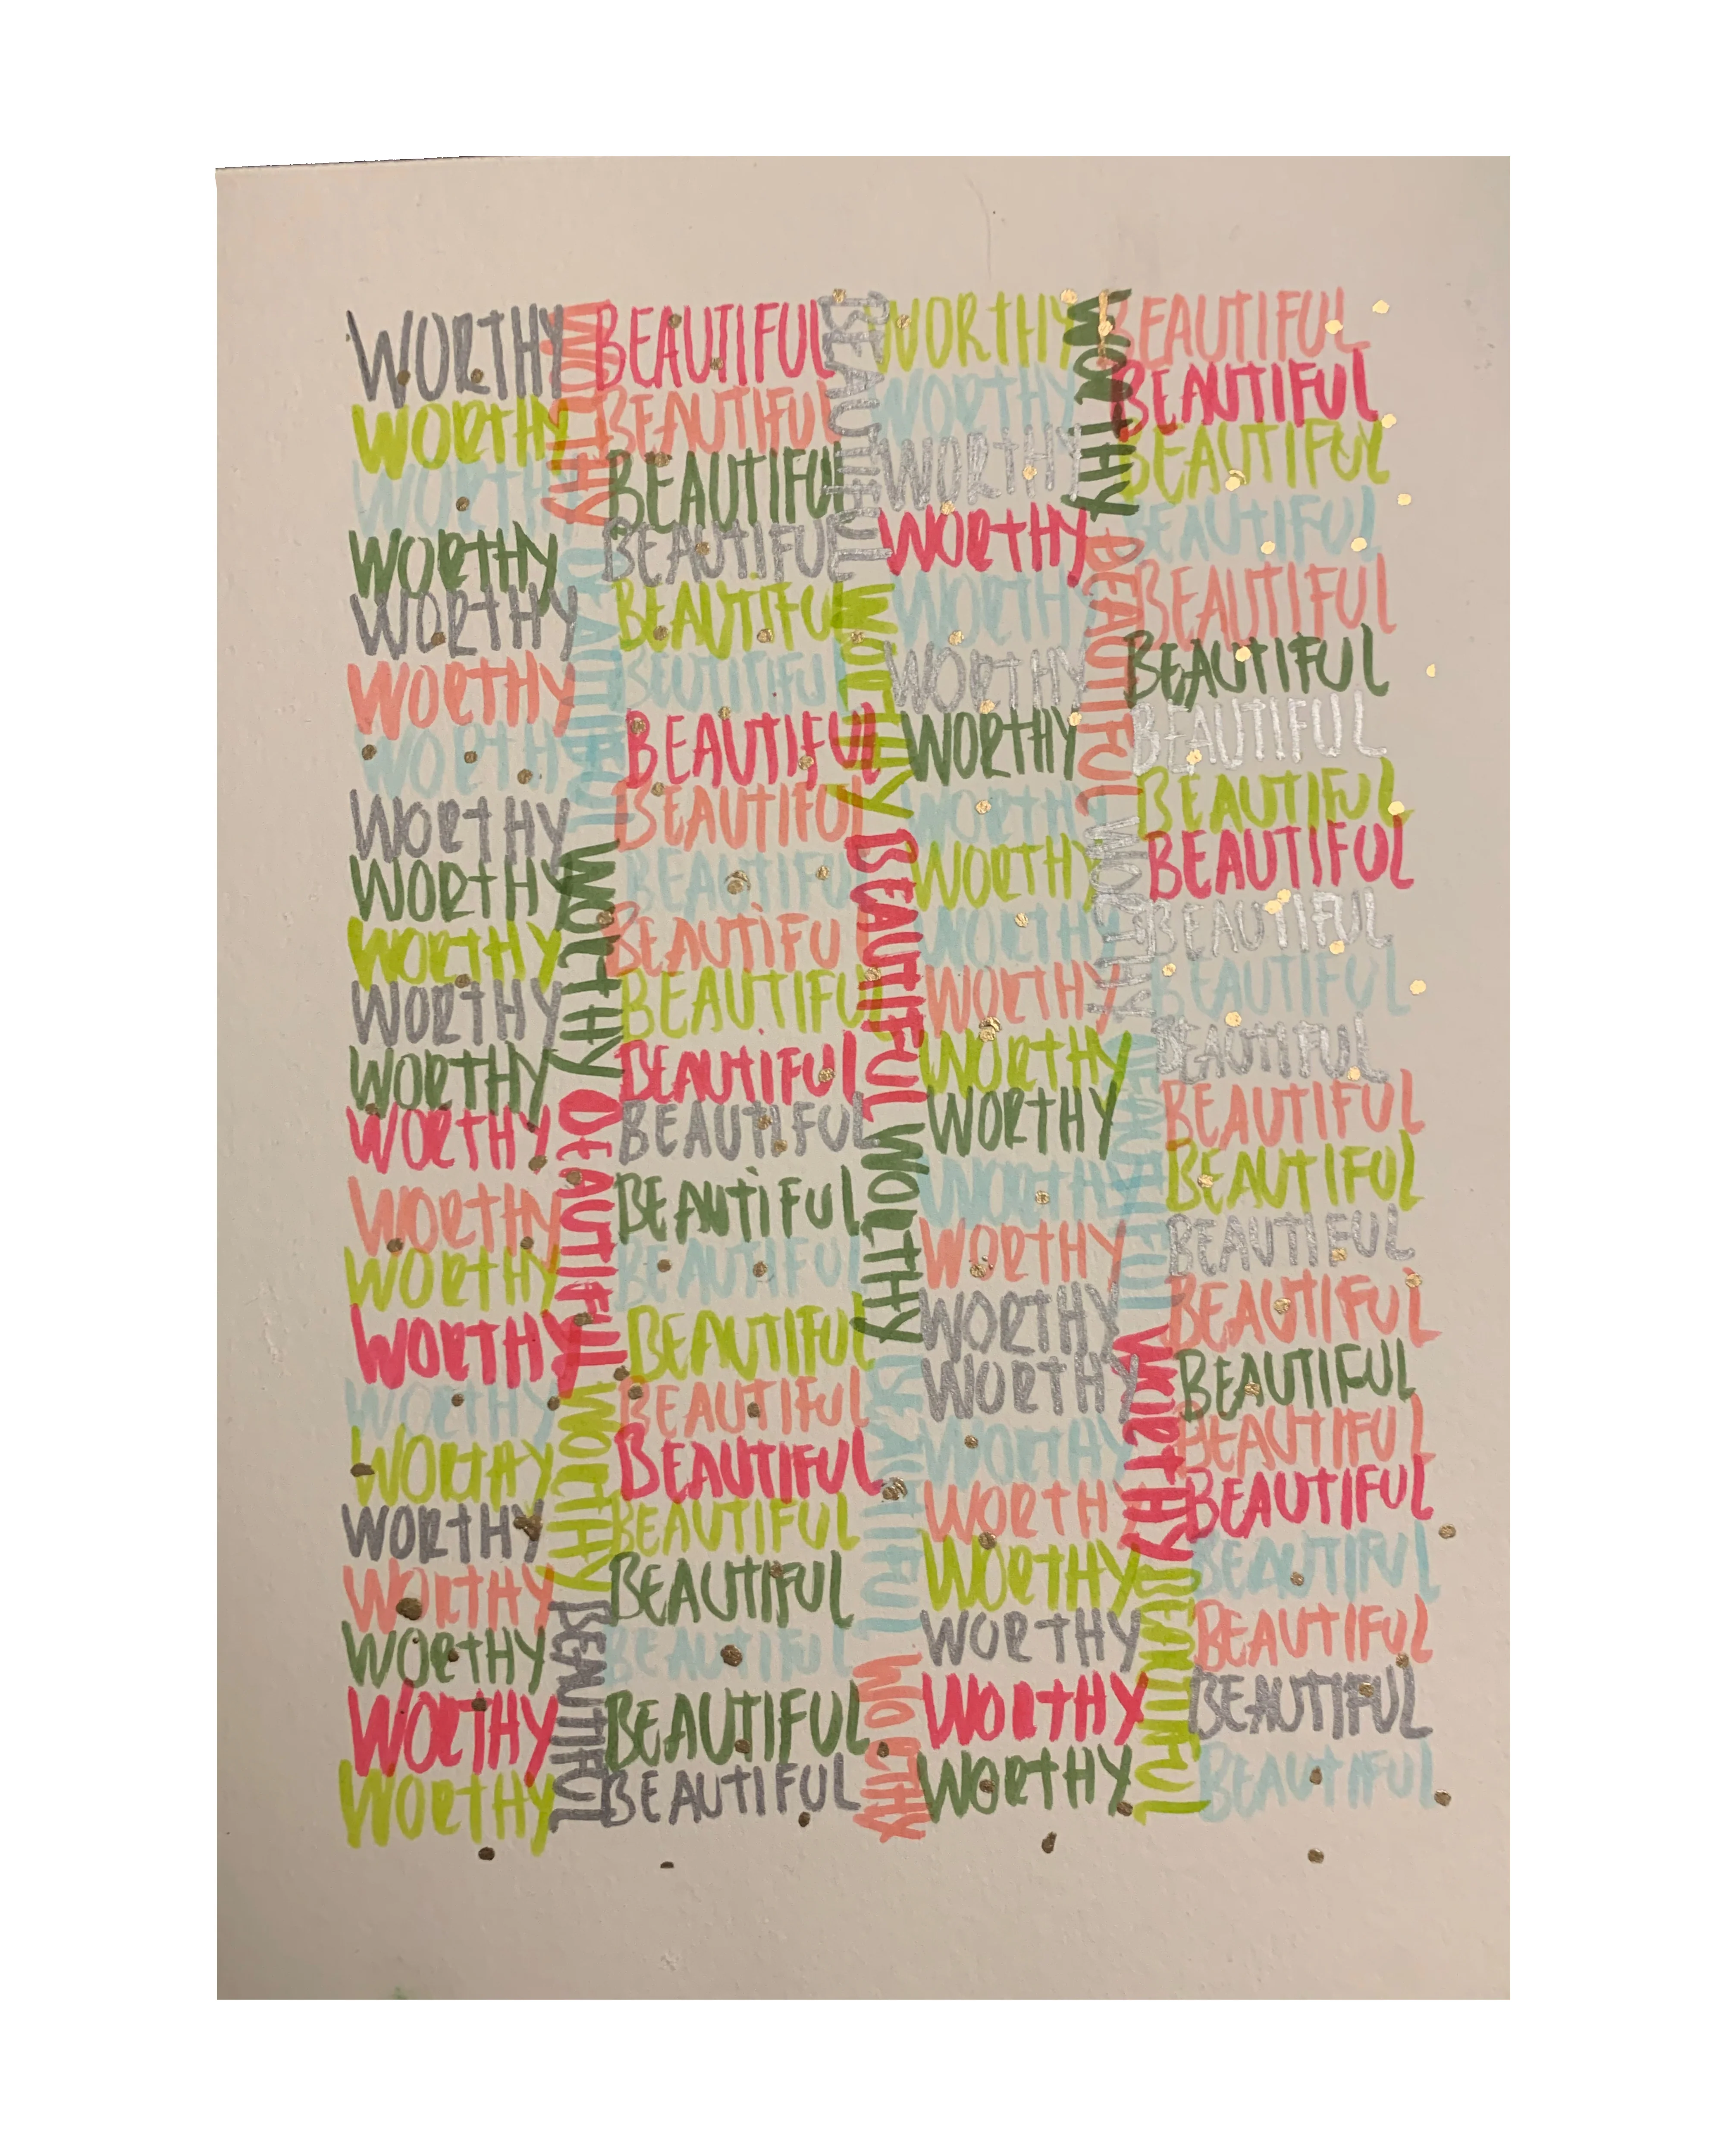 WORTHY
WORTHY
WORTHY
WORTHY
WORTHY
WORTHY
WORTHY
WORTHY
WORTHY
WORTHY
WORTHY
WORTHY
WORTHY
WORTHY
WORTHY
WORTHY
WORTHY
WORTHY
WORTHY
WORTHY
WORTHY
WORTHY
WORTHY
WORTHY BEAUTIFUL WORTHY BEAUTIFUL WORTHY BEAUTIFUL
BEAUTIFUL
BEAUTIFUL
BEAUTIFUL
BEAUTIFUL
BEAUTIFUL
BEUTIFUL
BEAUTIFUL
BEAUTIFUL
BEAUTIFUL
BEAUTIFUL
BEAUTIFUL
BEAUTIFUL
BEAUTIFUL
BEAUTIFUL
BEAUTIFUL
BEAUTIFUL
BEAUTIFUL
BEAUTIFUL
BEAUTIFUL
BEAUTIFUL
BEAUTIFUL
BEAUTIFUL
BEAUTIFUL
BEAUTIFUL WORTHY BEAUTIFUL WORTHY BEAUTIFUL WORTHY
WORTHY
WORTHY
WORTHY
WORTHY
WORTHY
WORTHY
WORTHY
WORTHY
WORTHY
WORTHY
WORTHY
WORTHY
WORTHY
WORTHY
WORTHY
WORTHY
WORTHY
WORTHY
WORTHY
WORTHY
WORTHY
WORTHY
WORTHY
WORTHY BEAUTIFUL WORTHY BEAUTIFUL WORTHY BEAUTIFUL
BEAUTIFUL
BEAUTIFUL
BEAUTIFUL
BEAUTIFUL
BEAUTIFUL
BEAUTIFUL
BEAUTIFUL
BEAUTIFUL
BEAUTIFUL
BEAUTIFUL
BEAUTIFUL
BEAUTIFUL
BEAUTIFUL
BEAUTIFUL
BEAUTIFUL
BEAUTIFUL
BEAUTIFUL
BEAUTIFUL
BEAUTIFUL
BEAUTIFUL
BEAUTIFUL
BEAUTIFUL
BEAUTIFUL